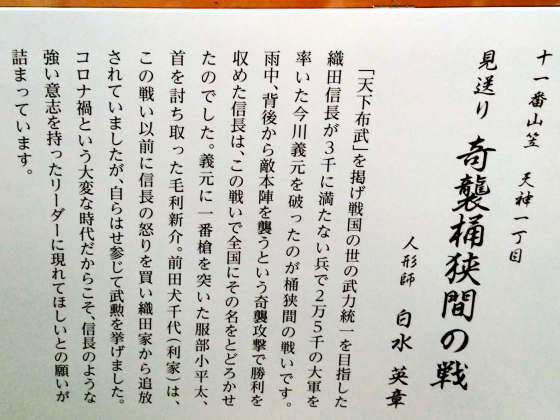 十一番山笠 天神一丁目
見送り 奇襲桶狭間の戦
人形師 白水 英章
「天下布武」を掲げ戦国の世の武力統一を目指した
織田信長が3千に満たない兵で2万5千の大軍を
率いた今川義元を破ったのが桶狭間の戦いです。
雨中、背後から敵本陣を襲うという奇襲攻撃で勝利を
収めた信長は、この戦いで全国にその名をとどろかせ
たのでした。義元に一番槍を突いた服部小平太、
首を討ち取った毛利新介。前田犬千代(利家)は、
この戦い以前に信長の怒りを買い織田家から追放
されていましたが、自らはせ参じて武勲を挙げました。
コロナ禍という大変な時代だからこそ、信長のような
強い意志を持ったリーダーに現れてほしいとの願いが
詰まっています。